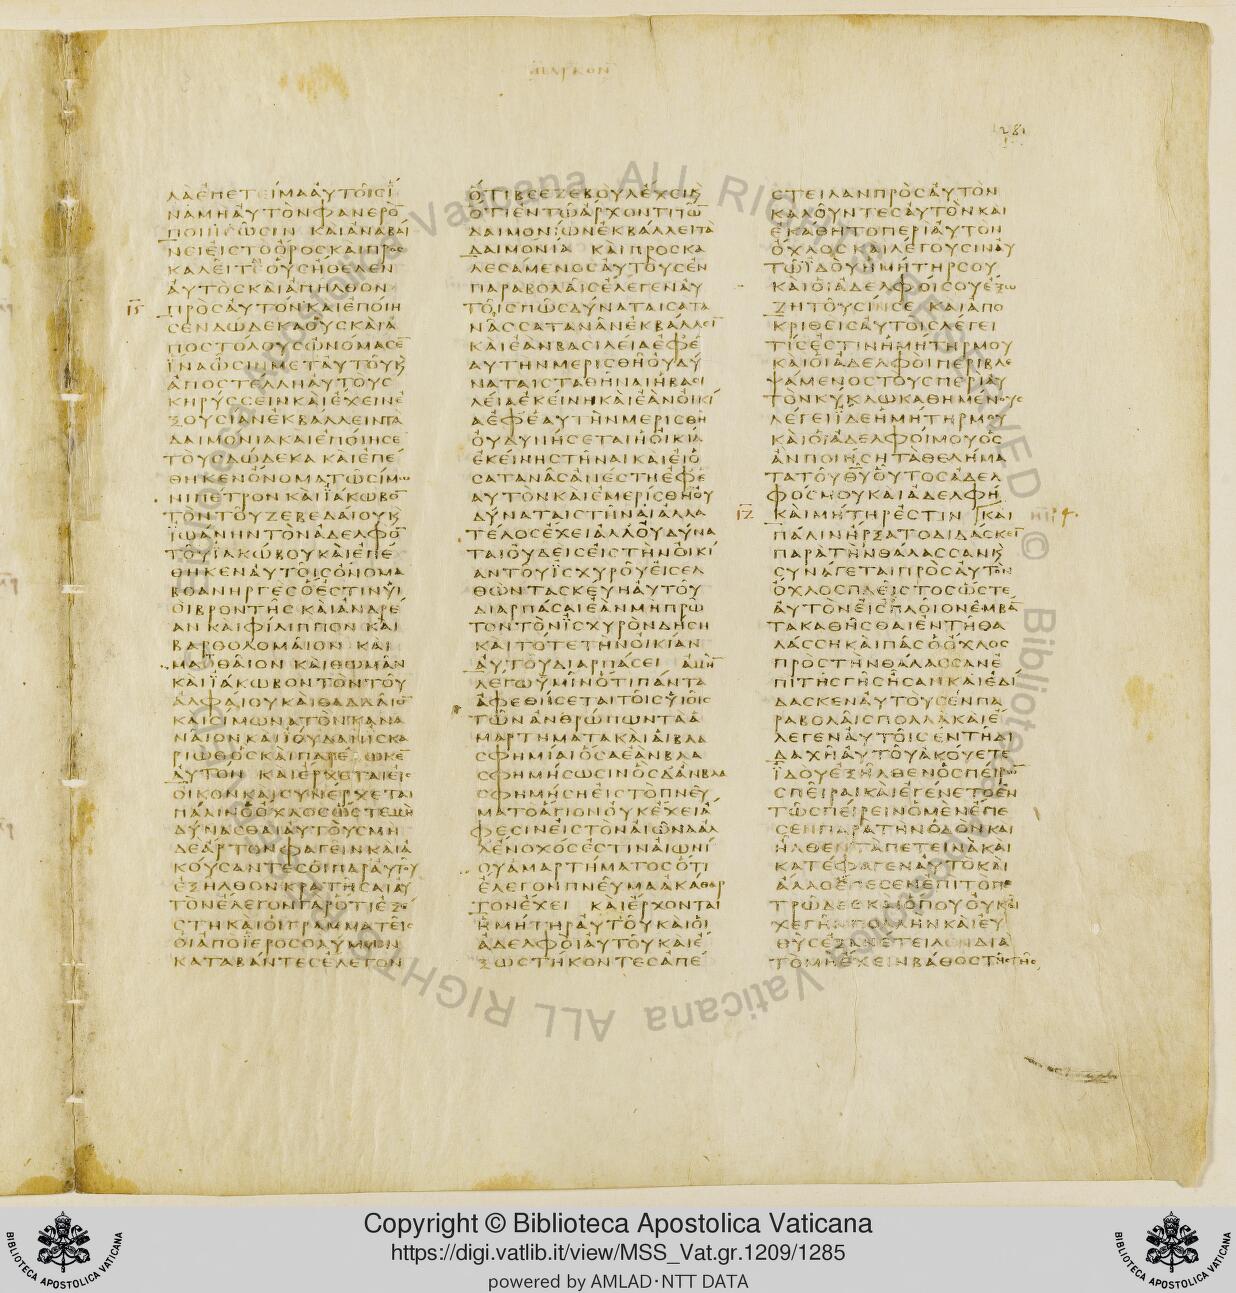 ΛΛΕΠΕΤΕΙΜΑΑΥΤΟΙΣΙ
ΝΑΜΗΑΥΤΟΝΦΑΝΕΡΟ
ΠΟΙΗΣΩΣΙΝ ΚΑΙΑΝΑΒΑΙ
ΝΕΙΕΙΣΤΟΟΡΟΣΚΑΙΠΡΟΣ
ΚΑΛΕΙΤΕΟΥΣΗΘΕΛΕΝ
ΑΥΤΟΣΚΑΙΑΠΗΛΘΟΝ
ΙϚ ΠΡΟΣΑΥΤΟΝΚΑΙΕΠΟΙΗ
ΣΕΝΔΩΔΕΚΑΟΥΣΚΑΙΑ
ΠΟΣΤΟΛΟΥΣΩΝΟΜΑΣΕ
ΙΝΑΩΣΙΝΜΕΤΑΥΤΟΥΚ
ΑΠΟΣΤΕΛΛΗΑΥΤΟΥΣ
ΚΗΡΥΣΣΕΙΝΚΑΙΕΧΕΙΝΕ
ΞΟΥΣΙΑΝΕΚΒΑΛΛΕΙΝΤΑ
ΔΑΙΜΟΝΙΑΚΑΙΕΠΟΙΗΣΕ
ΤΟΥΣΔΩΔΕΚΑ ΚΑΙΕΠΕ
ΘΗΚΕΝΟΝΟΜΑΤΩΣΙΜΩ
ΝΙΠΕΤΡΟΝ ΚΑΙΙΑΚΩΒΟ
ΤΟΝΤΟΥΖΕΒΕΔΑΙΟΥΚ
ΙΩΑΝΗΝΤΟΝΑΔΕΛΦΟ
ΤΟΥΙΑΚΩΒΟΥΚΑΙΕΠΕ
ΘΗΚΕΝΑΥΤΟΙΣΟΝΟΜΑ
ΒΟΑΝΗΡΓΕΣΟΕΣΤΙΝΥΙ
ΟΙΒΡΟΝΤΗΣ ΚΑΙΑΝΔΡΕ
ΑΝ ΚΑΙΦΙΛΙΠΠΟΝ ΚΑΙ
ΒΑΡΘΟΛΟΜΑΙΟΝ ΚΑΙ
ΜΑΘΘΑΙΟΝ ΚΑΙΘΩΜΑΝ
ΚΑΙΙΑΚΩΒΟΝΤΟΝΤΟΥ
ΑΛΦΑΙΟΥΚΑΙΘΑΔΔΑΙΟ
ΚΑΙΣΙΜΩΝΑΤΟΝΚΑΝΑ
ΝΑΙΟΝΚΑΙΙΟΥΔΑΝΙΣΚΑ
ΡΙΩΘΟΣΚΑΙΠΑΡΕΔΩΚΕ
ΑΥΤΟΝ ΚΑΙΕΡΧΕΤΑΙΕΙΣ
ΟΙΚΟΝΚΑΙΣΥΝΕΡΧΕΤΑΙ
ΠΑΛΙΝΟΟΧΛΟΣΩΣΤΕΜΗ
ΔΥΝΑΣΘΑΙΑΥΤΟΥΣΜΗ
ΔΕΑΡΤΟΝΦΑΓΕΙΝΚΑΙΑ
ΚΟΥΣΑΝΤΕΣΟΙΠΑΡΑΥΤΟΥ
ΕΞΗΛΘΟΝΚΡΑΤΗΣΑΙΑΥ
ΤΟΝΕΛΕΓΟΝΓΑΡΟΤΙΕΞΕ
ΣΤΗΚΑΙΟΙΓΡΑΜΜΑΤΕΙΣ
ΟΙΑΠΟΙΕΡΟΣΟΛΥΜΩΝ
ΚΑΤΑΒΑΝΤΕΣΕΛΕΓΟΝ
ΟΤΙΒΕΕΖΕΒΟΥΛΕΧΕΙΚ
ΟΤΙΕΝΤΩΑΡΧΟΝΤΙΤΩ
ΔΑΙΜΟΝΙΩΝΕΚΒΑΛΛΕΙΤΑ
ΔΑΙΜΟΝΙΑ ΚΑΙΠΡΟΣΚΑ
ΛΕΣΑΜΕΝΟΣΑΥΤΟΥΣΕΝ
ΠΑΡΑΒΟΛΑΙΣΕΛΕΓΕΝΑΥ
ΤΟΙΣΠΩΣΔΥΝΑΤΑΙΣΑΤΑ
ΝΑΣΣΑΤΑΝΑΝΕΚΒΑΛΛΕΙ
ΚΑΙΕΑΝΒΑΣΙΛΕΙΑΕΦΕ
ΑΥΤΗΝΜΕΡΙΣΘΗΟΥΔΥ
ΝΑΤΑΙΣΤΑΘΗΝΑΙΗΒΑΣΙ
ΛΕΙΑΕΚΕΙΝΗΚΑΙΕΑΝΟΙΚΙ
ΑΕΦΕΑΥΤΗΝΜΕΡΙΣΘΗ
ΟΥΔΥΝΗΣΕΤΑΙΗΟΙΚΙΑ
ΕΚΕΙΝΗΣΤΗΝΑΙΚΑΙΕΙΟ
ΣΑΤΑΝΑΣΑΝΕΣΤΗΕΦΕ
ΑΥΤΟΝΚΑΙΕΜΕΡΙΣΘΗΟΥ
ΔΥΝΑΤΑΙΣΤΗΝΑΙΑΛΛΑ
ΤΕΛΟΣΕΧΕΙΑΛΛΟΥΔΥΝΑ
ΤΑΙΟΥΔΕΙΣΕΙΣΤΗΝΟΙΚΙ
ΑΝΤΟΥΙΣΧΥΡΟΥΕΙΣΕΛ
ΘΩΝΤΑΣΚΕΥΗΑΥΤΟΥ
ΔΙΑΡΠΑΣΑΙΕΑΝΜΗΠΡΩ
ΤΟΝΤΟΝΙΣΧΥΡΟΝΔΗΣΗ
ΚΑΙΤΟΤΕΤΗΝΟΙΚΙΑΝ
ΑΥΤΟΥΔΙΑΡΠΑΣΕΙ ΑΜΗ
ΛΕΓΩΥΜΙΝΟΤΙΠΑΝΤΑ
ΑΦΕΘΗΣΕΤΑΙΤΟΙΣΥΙΟΙΣ
ΤΩΝΑΝΘΡΩΠΩΝΤΑΑ
ΜΑΡΤΗΜΑΤΑΚΑΙΑΙΒΛΑ
ΣΦΗΜΙΑΙΟΣΑΕΑΝΒΛΑ
ΣΦΗΜΗΣΩΣΙΝΟΣΔΑΝΒΛΑ
ΣΦΗΜΗΣΗΕΙΣΤΟΠΝΕΥ
ΜΑΤΟΑΓΙΟΝΟΥΚΕΧΕΙΑ
ΦΕΣΙΝΕΙΣΤΟΝΑΙΩΝΑΑΛ
ΛΕΝΟΧΟΣΕΣΤΙΝΑΙΩΝΙ
ΟΥΑΜΑΡΤΗΜΑΤΟΣΟΤΙ
ΕΛΕΓΟΝΠΝΕΥΜΑΑΚΑΘΑΡ
ΤΟΝΕΧΕΙ ΚΑΙΕΡΧΟΝΤΑΙ
ΗΜΗΤΗΡΑΥΤΟΥΚΑΙΟΙ
ΑΔΕΛΦΟΙΑΥΤΟΥΚΑΙΕ
ΞΩΣΤΗΚΟΝΤΕΣΑΠΕ
ΣΤΕΙΛΑΝΠΡΟΣΑΥΤΟΝ
ΚΑΛΟΥΝΤΕΣΑΥΤΟΝΚΑΙ
ΕΚΑΘΗΤΟΠΕΡΙΑΥΤΟΝ
ΟΧΛΟΣΚΑΙΛΕΓΟΥΣΙΝΑΥ
ΤΩΙΔΟΥΗΜΗΤΗΡΣΟΥ
ΚΑΙΟΙΑΔΕΛΦΟΙΣΟΥΕΞΩ
ΖΗΤΟΥΣΙΝΣΕ ΚΑΙΑΠΟ
ΚΡΙΘΕΙΣΑΥΤΟΙΣΛΕΓΕΙ
ΤΙΣΕΣΤΙΝΗΜΗΤΗΡΜΟΥ
ΚΑΙΟΙΑΔΕΛΦΟΙΠΕΡΙΒΛΕ
ΨΑΜΕΝΟΣΤΟΥΣΠΕΡΙΑΥ
ΤΟΝΚΥΚΛΩΚΑΘΗΜΕΝΟΥΣ
ΛΕΓΕΙΙΔΕΗΜΗΤΗΡΜΟΥ
ΚΑΙΟΙΑΔΕΛΦΟΙΜΟΥΟΣ
ΑΝΠΟΙΗΣΗΤΑΘΕΛΗΜΑ
ΤΑΤΟΥΘΥΟΥΤΟΣΑΔΕΛ
ΦΟΣΜΟΥΚΑΙΑΔΕΛΦΗ
ΙΖ ΚΑΙΜΗΤΗΡΕΣΤΙΝ ΚΑΙ
ΠΑΛΙΝΗΡΞΑΤΟΔΙΔΑΣΚΕΙ
ΠΑΡΑΤΗΝΘΑΛΑΣΣΑΝΚ
ΣΥΝΑΓΕΤΑΙΠΡΟΣΑΥΤΟΝ
ΟΧΛΟΣΠΛΕΙΣΤΟΣΩΣΤΕ
ΑΥΤΟΝΕΙΣΠΛΟΙΟΝΕΜΒΑ
ΤΑΚΑΘΗΣΘΑΙΕΝΤΗΘΑ
ΛΑΣΣΗΚΑΙΠΑΣΟΟΧΛΟΣ
ΠΡΟΣΤΗΝΘΑΛΑΣΣΑΝΕ
ΠΙΤΗΣΓΗΣΗΣΑΝΚΑΙΕΔΙ
ΔΑΣΚΕΝΑΥΤΟΥΣΕΝΠΑ
ΡΑΒΟΛΑΙΣΠΟΛΛΑΚΑΙΕ
ΛΕΓΕΝΑΥΤΟΙΣΕΝΤΗΔΙ
ΔΑΧΗΑΥΤΟΥΑΚΟΥΕΤΕ
ΙΔΟΥΕΞΗΛΘΕΝΟΣΠΕΙΡΩ
ΣΠΕΙΡΑΙΚΑΙΕΓΕΝΕΤΟΕΝ
ΤΩΣΠΕΙΡΕΙΝΟΜΕΝΕΠΕ
ΣΕΝΠΑΡΑΤΗΝΟΔΟΝΚΑΙ
ΗΛΘΕΝΤΑΠΕΤΕΙΝΑΚΑΙ
ΚΑΤΕΦΑΓΕΝΑΥΤΟΚΑΙ
ΑΛΛΟΕΠΕΣΕΝΕΠΙΤΟΠΕ
ΤΡΩΔΕΣΚΑΙΟΠΟΥΟΥΚΕΙ
ΧΕΓΗΝΠΟΛΛΗΝΚΑΙΕΥ
ΘΥΣΕΞΑΝΕΤΕΙΛΕΝΔΙΑ
ΤΟΜΗΕΧΕΙΝΒΑΘΟΣΤΗΣΓΗΣ
Copyright © Biblioteca Apostolica Vaticana
https://digi.vatlib.it/view/MSS_Vat.gr.1209/1285
powered by AMLAD·NTT DATA